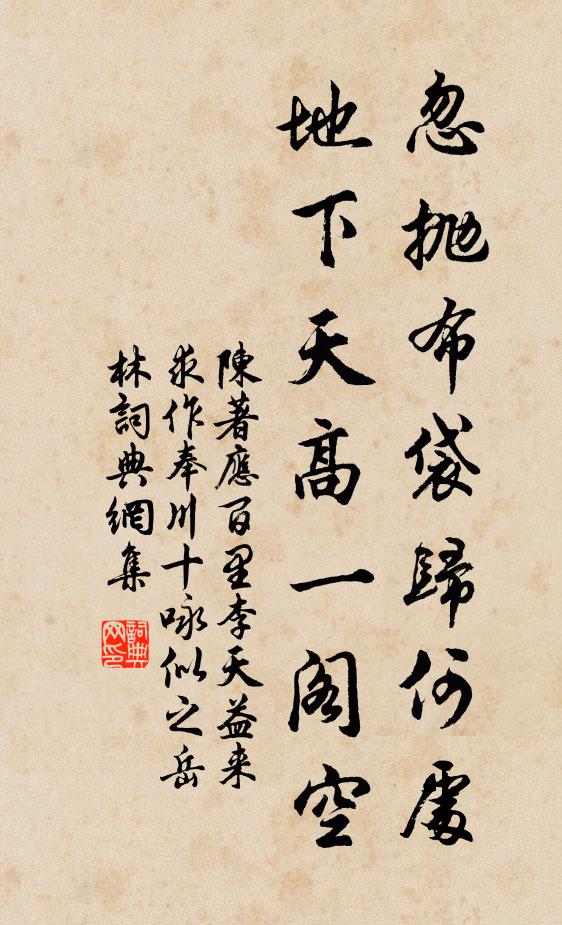 忽拋布袋歸何處
地下天高一閣空
陳著應百里李天益来
求作奉川十咏似之岳
林詞典網集
詞典
网印